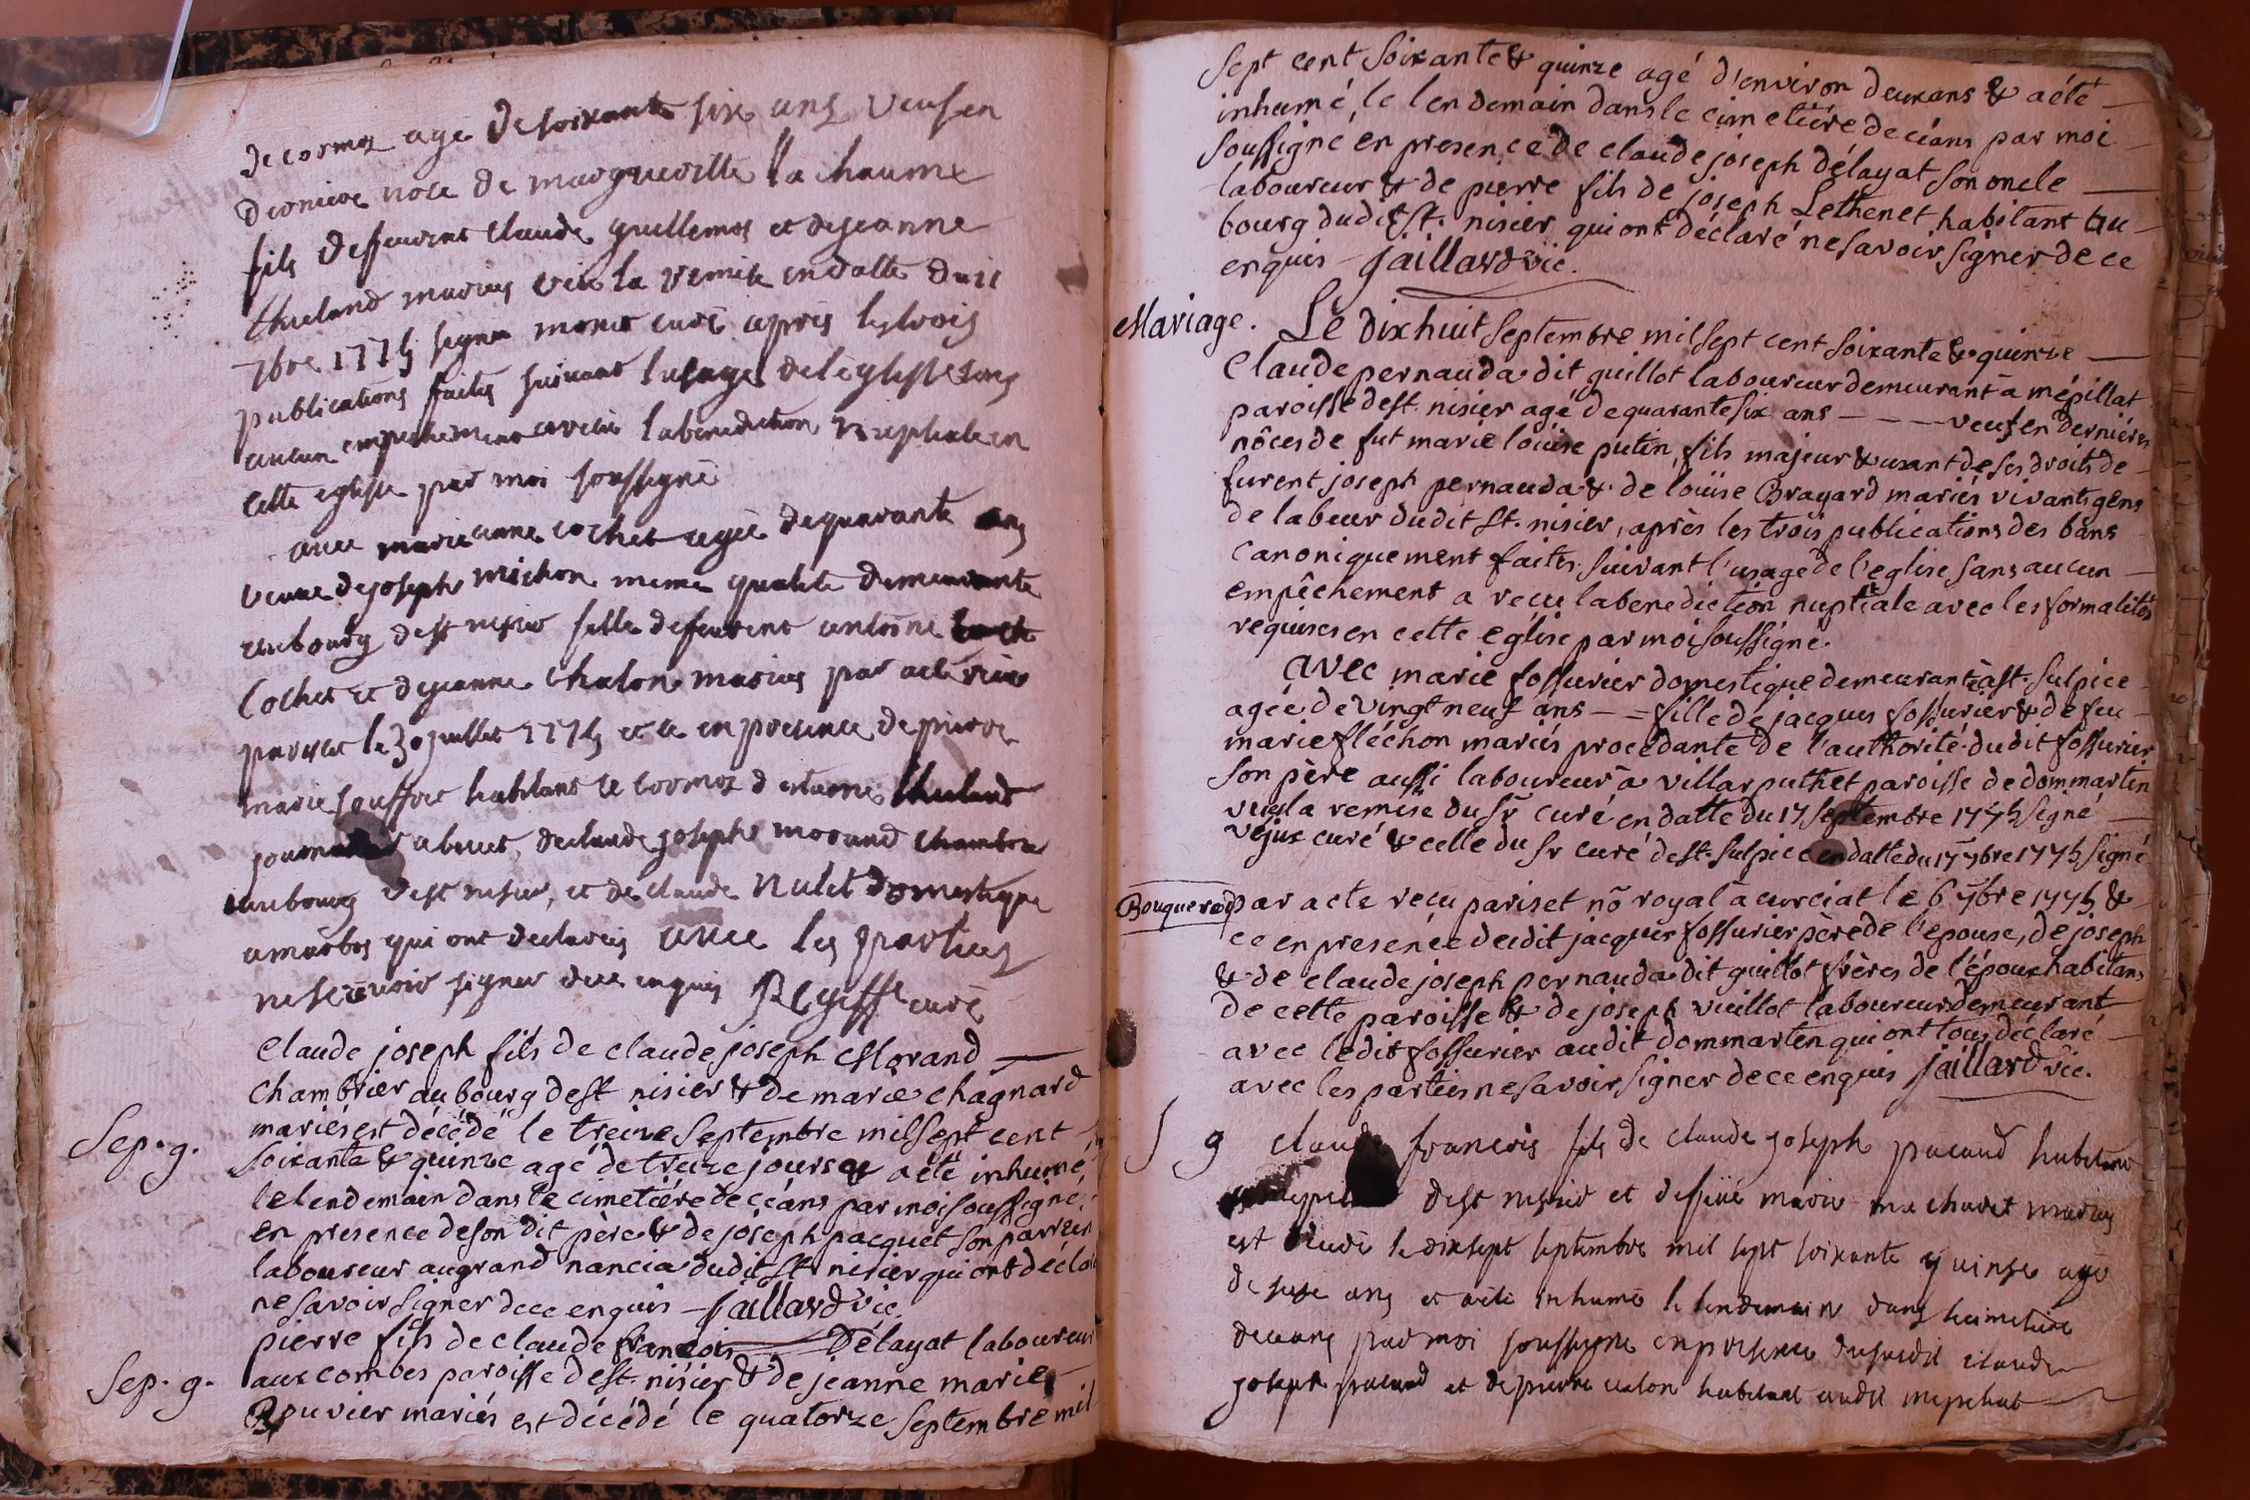 de cormoz agé de soixante six ans veuf en
derniere noce de margueritte la chaume
fils deffeurent claude guillemot et de jeanne
thieland mariés veu la remise en datte du 11
7bre 1775 signée curé après les trois
publications faites suivant l'usage de l'eglisse sans
aucun empechement avecu la benediction nuptiale en
cette eglisse par moi soussigné
avec marie anne cochet agée de quarante ans
veuve de joseph michon meme qualité demeurante
au bourg de st nisier fille defeurent antoine
Cochet et de jeanne chalon mariés par acte reçu
pariset le 30 juillet 1775 et ce en presence de pierre
marie habitant le cormoz d
abuet, de claude joseph morand chambrier
au bourg de st nisier, et de claude nulet domestique
a marbos qui ont declarés avec les parties
ne sçavoir signer de ce enquis curé
claude joseph fils de claude joseph Morand —
chambrier au bourg de st nisier & de marie chagnard
mariés est décédé le treize septembre mil sept cent
Sep. g.
soixante & quinze agé de treize jours & a été inhumé
le lendemain dans le cimetiére de céans par moi soussigné
en presence de son dit père & de joseph pacquet son parrein
laboureur au grand nancia dudit st nisier qui ont déclaré
ne savoir signer de ce enquis — Jaillard vic.
pierre fils de claude francois — Délayat laboureur
Sep. g.
aux combes paroisse de st. nisier & de jeanne marie
Bouvier mariés est décédé le quatorze septembre mil
sept cent soixante & quinze agé d'environ deux ans & a été —
inhumé le lendemain dans le cimetiére de céans par moi
soussigné en presence de claude joseph délayat son oncle —
laboureur & de pierre fils de joseph Lethenet habitant au
bourg dudit st. nisier qui ont déclaré ne savoir signer de ce
enquis — Jaillard vic.
Mariage. Le dix huit septembre mil sept cent soixante & quinze —
Claude pernauda dit guillot laboureur demeurant à mépillat
paroisse de st. nisier agé de quarante six ans — — — veuf en derniéres
nôces de fut marie loüise putin, fils majeur & usant de ses droits de
furent joseph pernauda & de loüise Brayard mariés vivants gens
de labeur dudit st. nisier, après les trois publications des bans
canoniquement faites suivant l'usage de l'eglise sans aucun —
empêchement a reçu la benediction nuptiale avec les formalités
requises en cette eglise par moi soussigné.
avec marie fossurier domestique demeurante à st. sulpice
agée de vingt neuf ans — = fille de jacques fossurier & de feu
marie fléchon mariés procedante de l'authorité dudit fossurier
son père aussi laboureur à villar puthet paroisse de dommartin
vu la remise du sr curé en datte du 17 septembre 1775 signé —
véjux curé & celle du sr curé de st. sulpice en datte du 17 7bre 1775 signé
Bouquerod
par acte reçu pariset nõ royal à curciat le 6 7bre 1775 &
ce en presence du dit jacques fossurier père de l'epouse, de joseph
& de claude joseph pernauda dit guillot frères de l'époux habitans
de cette paroisse & de joseph vuillot laboureur demeurant
avec ledit fossurier audit dommartin qui ont tous déclaré
avec les parties ne savoir signer de ce enquis Jaillard vic.
S g claude francois fils de claude joseph pacaud habitant
de st nisier et deffuë marie machuret mariés
est decedé le dix sept septembre mil sept soixante quinze agé
de seize ans et a été inhumé le lendemain dans le cimetiére
de ceans par moi soussigné en presence du susdit claude
joseph pacaud et de pierre caton habitant audit mépilliat